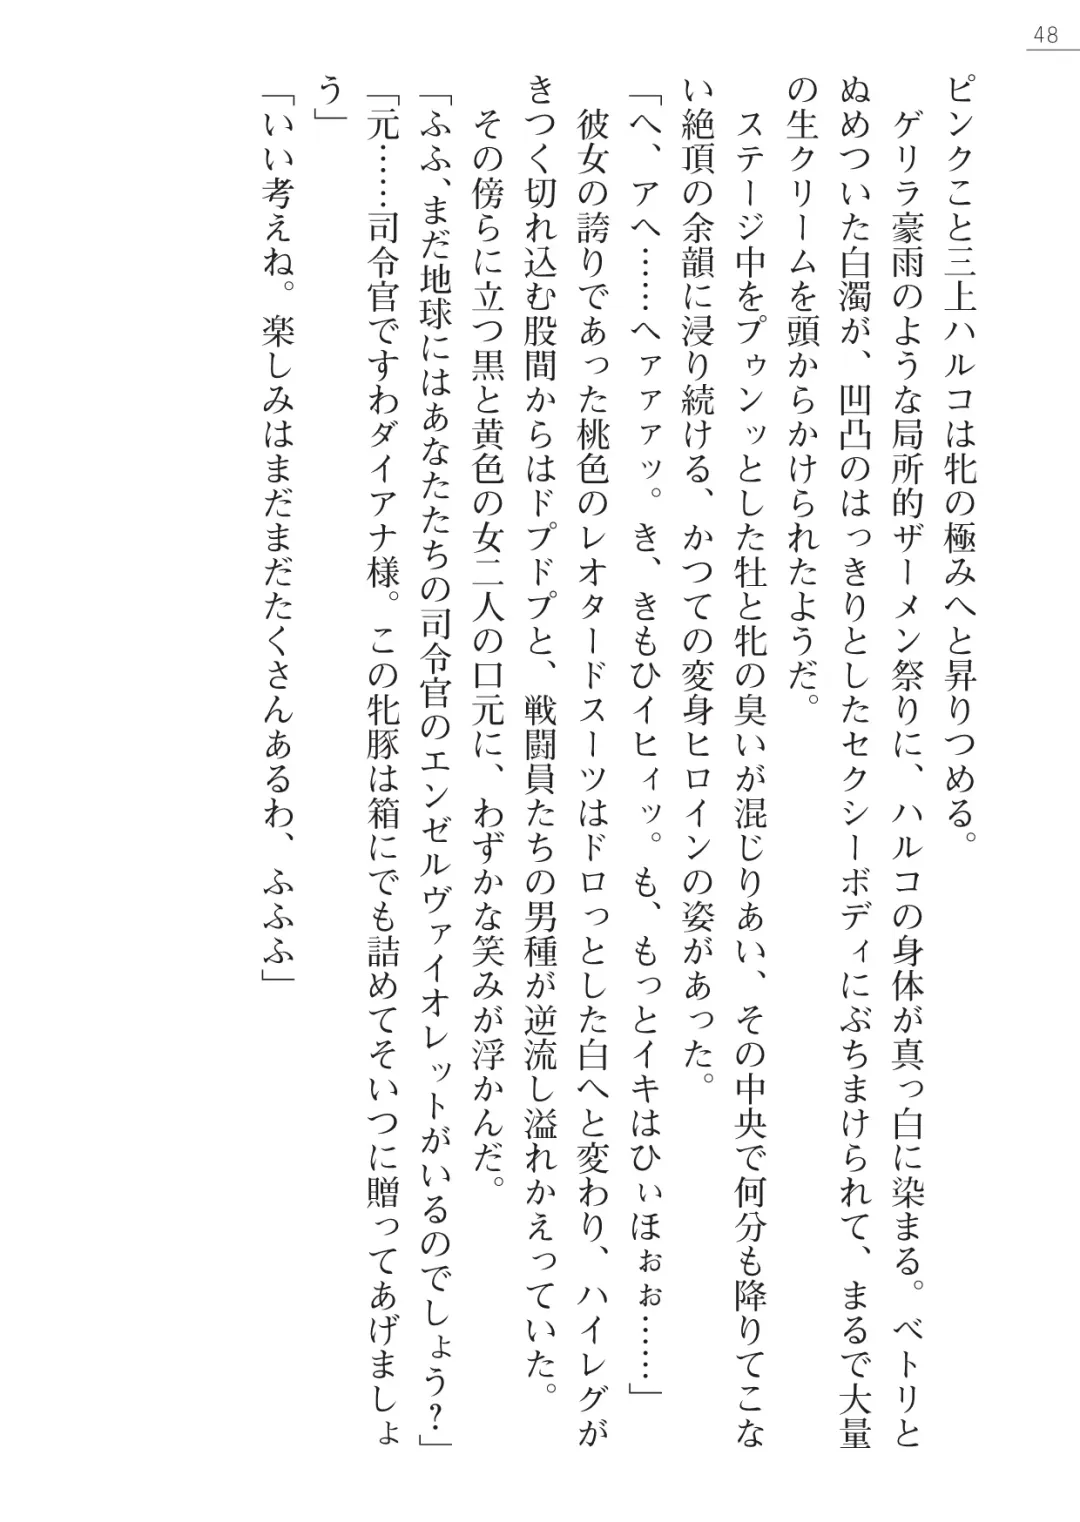 48
ピンクこと三上ハルコは牝の極みへと昇りつめる。
　ゲリラ豪雨のような局所的ザーメン祭りに、ハルコの身体が真っ白に染まる。ベトリと
ぬめついた白濁が、凹凸のはっきりとしたセクシーボディにぶちまけられて、まるで大量
の生クリームを頭からかけられたようだ。
　ステージ中をプゥンッとした牡と牝の臭いが混じりあい、その中央で何分も降りてこな
い絶頂の余韻に浸り続ける、かつての変身ヒロインの姿があった。
「へ、アへ……へァァァッ。き、きもひイヒィッ。も、もっとイキはひぃほぉぉ……」
　彼女の誇りであった桃色のレオタードスーツはドロっとした白へと変わり、ハイレグが
きつく切れ込む股間からはドプドプと、戦闘員たちの男種が逆流し溢れかえっていた。
　その傍らに立つ黒と黄色の女二人の口元に、わずかな笑みが浮かんだ。
「ふふ、まだ地球にはあなたたちの司令官のエンゼルヴァイオレットがいるのでしょう？」
「元……司令官ですわダイアナ様。この牝豚は箱にでも詰めてそいつに贈ってあげましょ
う」
「いい考えね。楽しみはまだまだたくさんあるわ、ふふふ」